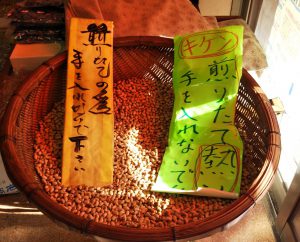 煎りたての為
手を入れないで下さい
キケン
煎りたて
熱い
手を入れないで